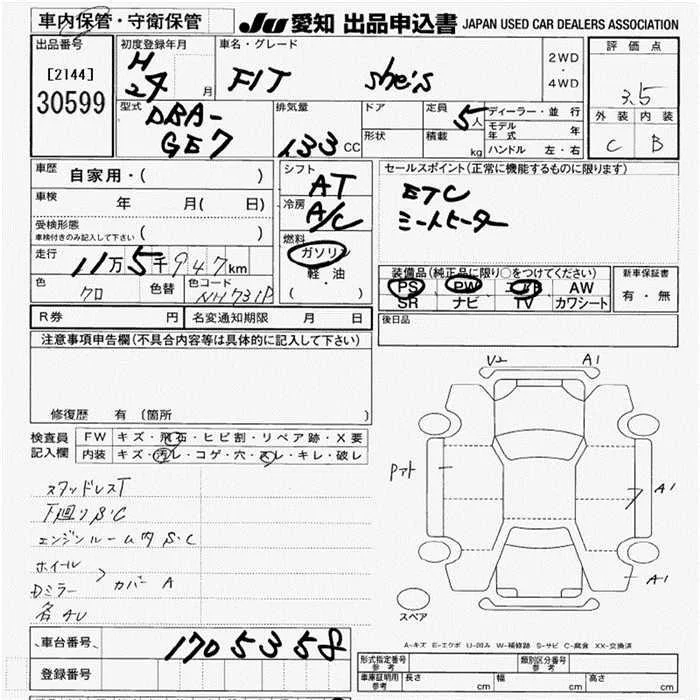 車内保管・守衛保管
JU 愛知 出品申込書 JAPAN USED CAR DEALERS ASSOCIATION
出品番号
[2144]
30599
初度登録年月
H
24 月
車名・グレード
FIT she's
2WD
・
4WD
評価点
3.5
外装 内装
C B
型式
DBA-
GE7
排気量
1.33 CC
ドア
形状
定員
5人
積載
kg
ディーラー・並行
モデル
年式 年
ハンドル 左・右
車歴
自家用・( )
車検
年 月( 日)
受検形態
車検付きのみ記入して下さい ( )
走行
11万5千947km
色
クロ
色替
色コード
NH731P
シフト
AT
冷房
A/C
燃料
ガソリン
・
軽油
( )
セールスポイント(正常に機能するものに限ります)
ETC
シートヒーター
装備品(純正品に限り○をつけてください)
PS PW AW
SR ナビ TV カワシート
新車保証書
有・無
R券 円
名変通知期限 月 日
後日品
注意事項申告欄(不具合内容等は具体的に記入して下さい)
修復歴 有 (箇所 )
検査員
記入欄
FW キズ・飛石・ヒビ割・リペア跡・X要
内装 キズ・汚レ・コゲ・穴・スレ・キレ・破レ
スタッドレスT
下廻りS・C
エンジンルーム内S・C
ホイール
Dミラー
カバー A
各AU
U2 A1
Pアト
A1
A1
スペア
A-キズ E-エクボ U-凹み W-補修跡 S-サビ C-腐食 XX-交換済
車台番号
1705358
登録番号
形式指定番号
参考
類別区分番号
参考
車庫証明用
参考
長さ cm 幅 cm 高さ cm